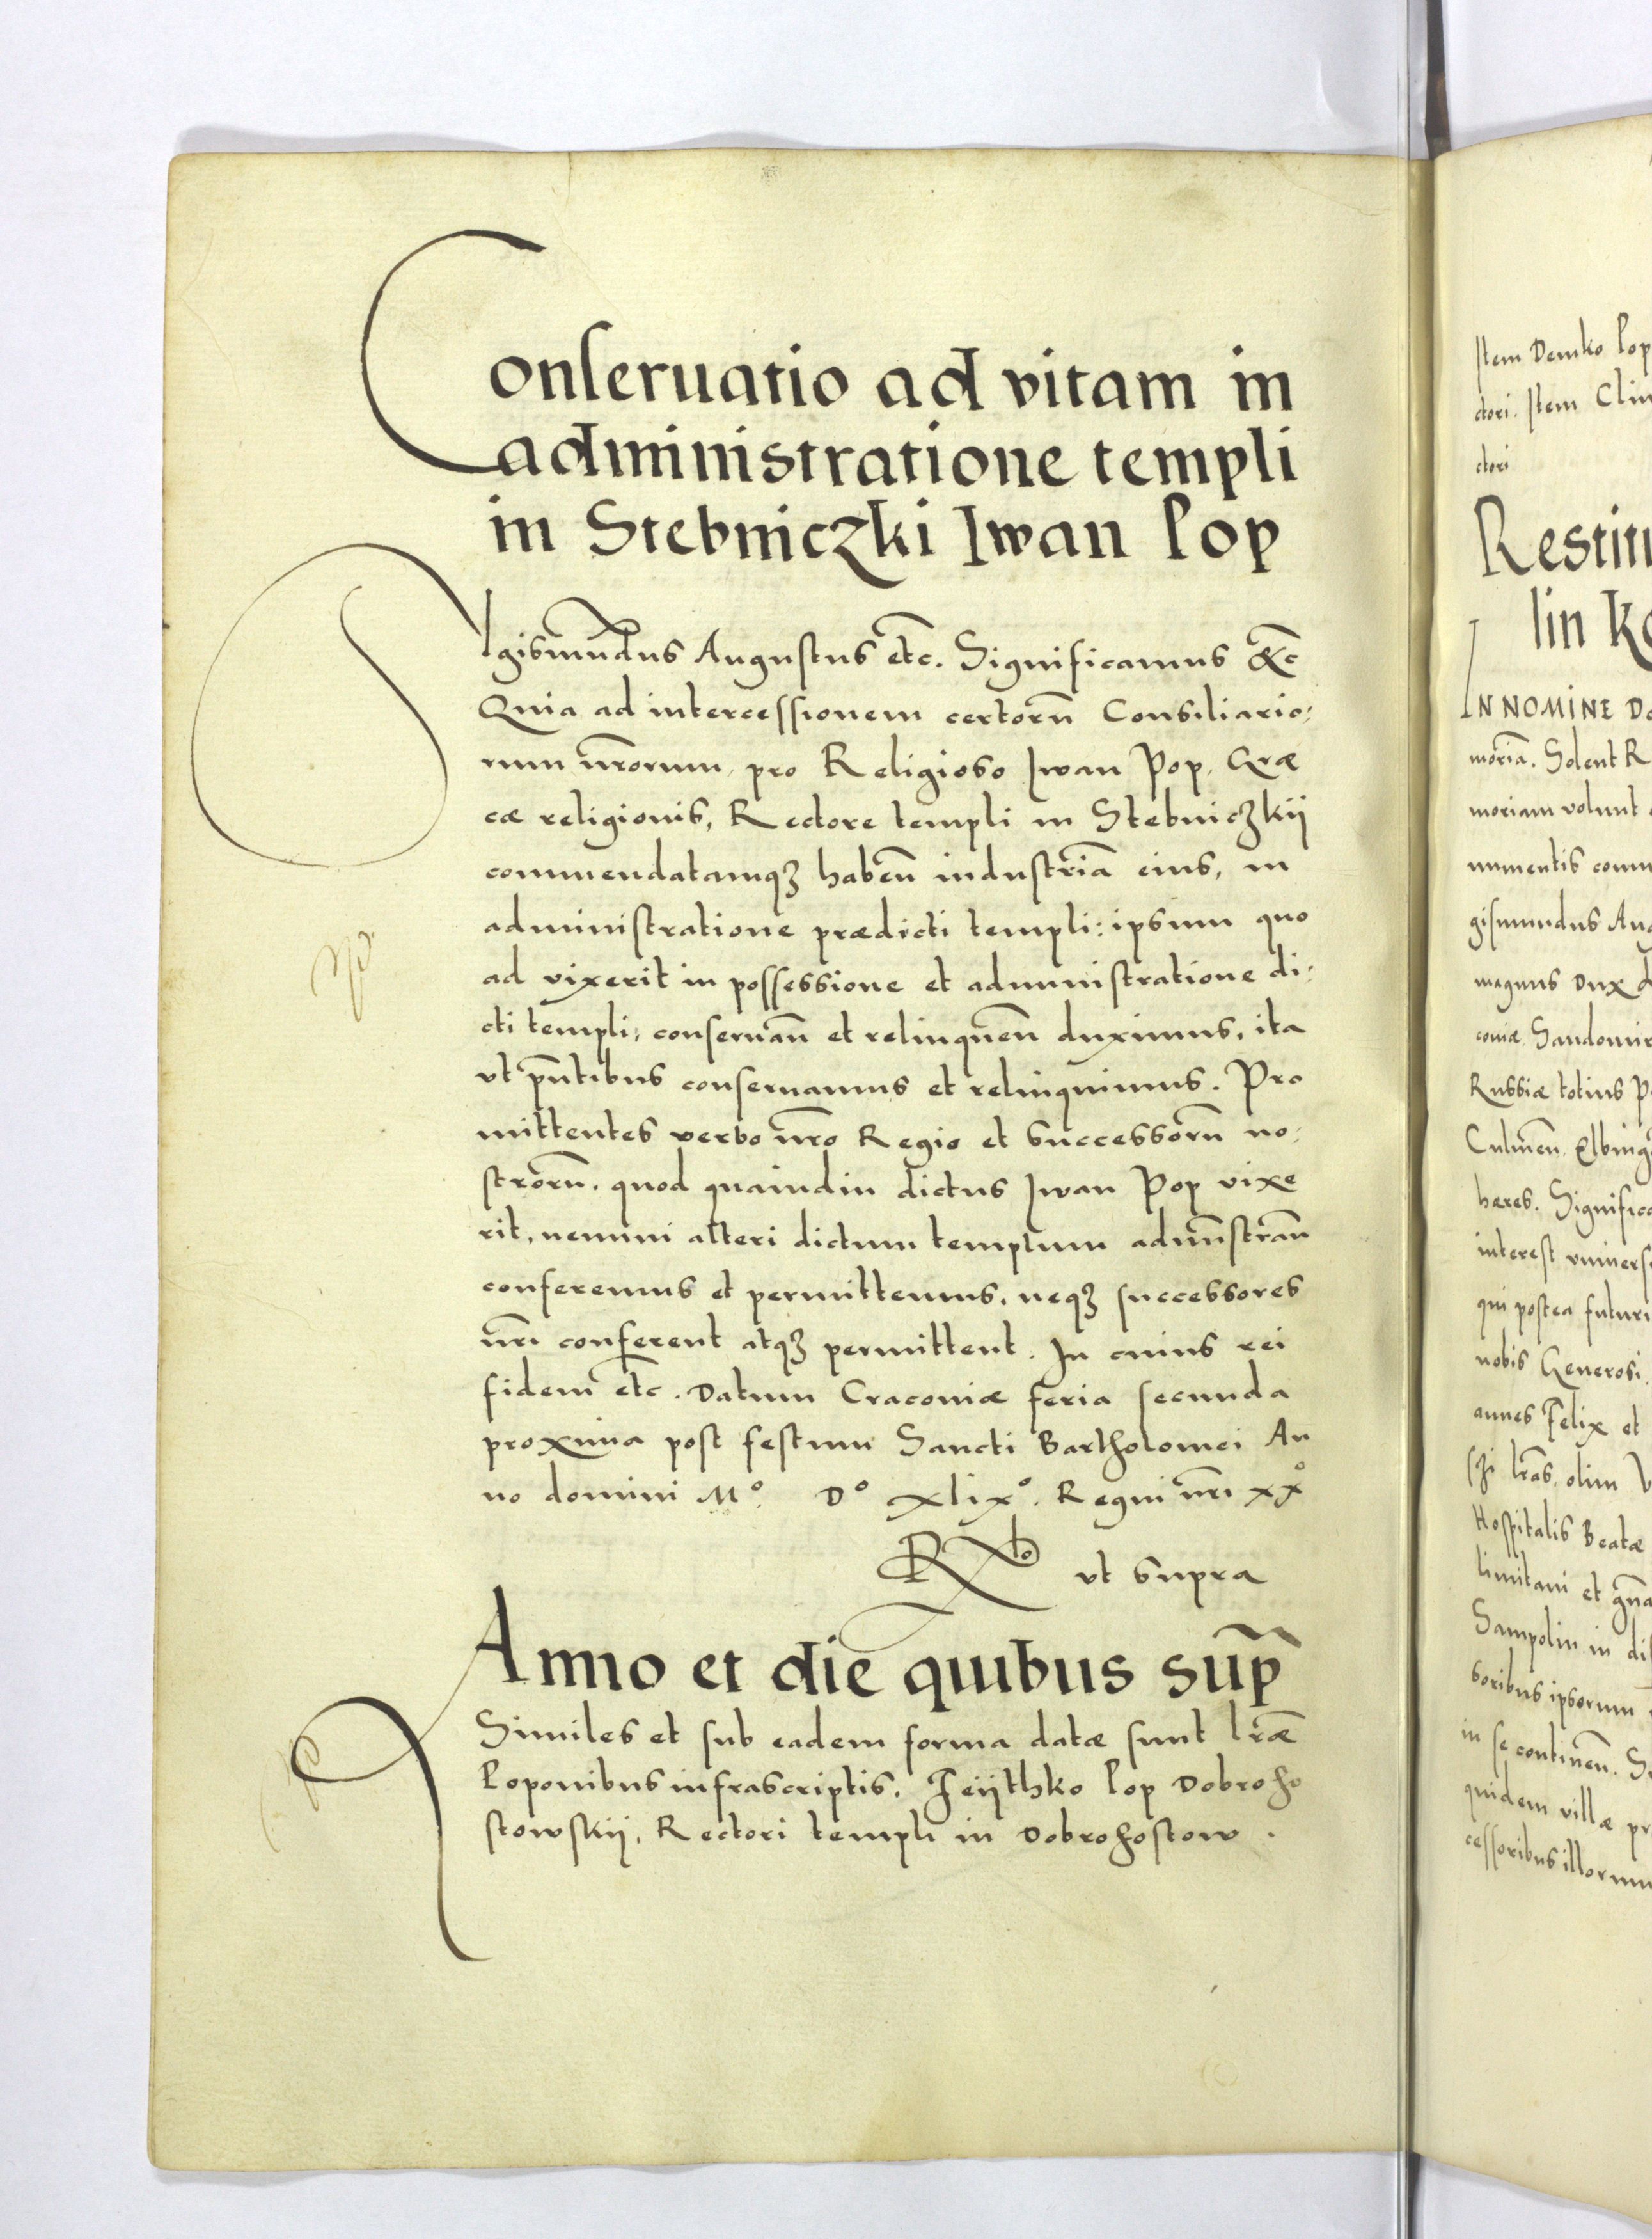 Conseruatio ad vitam in
administratione templi
in Stebniczki Iwan Pop
Sigismūdus Augustus etc̄. Significamus &c̄
Quia ad intercessionem certorū Consiliario:
rum nr̄orum, pro Religioso Iwan Pop, Græ
cæ religionis, Rectore templi in Stebniczkij
commendatamqꝫ habeñ industriā eius, in
administratione prædicti templi: ipsum quo
ad vixerit in possessione et administratione di:
cti templi, conseruañ et relinqueñ duximus, ita
vt pn̄tibus conseruamus et relinquimus. Pro
mittentes verbo nr̄o Regio et successorū no:
strorū. quod quamdiu dictus Iwan Pop vixe
rit, nemini alteri dictum templum admn̄strañ
conferemus et permittemus, neqꝫ successores
nr̄i conferent atqꝫ permittent. In cuius rei
fidem etc̄. Datum Cracouiæ feria secunda
proxima post festum Sancti Bartholomei An
no domini Mº. Dº xlixº. Regni nr̄i xxº
Rᵗᵒ vt supra
Anno et die quibus sup̄
Similes et sub eadem forma datæ sunt lr̄æ
Poponibus infrascriptis. Feijthko Pop Dobroho
stowskij, Rectori templi in Dobrohostow.
Item Demko Pop
ctori. Item Clim
ctori
Restitu
lin Ko
IN NOMINE Do
moriā. Solent R
moriam volunt
numentis comm
gismundus Aug
magnus Dux
coniæ Sandomir
Russiæ totius P
Culmeñ Elbing
hæres. Significa
interest vniuers
qui postea futuri
nobis Generosi
annes Felix et
lr̄as, olim
Hospitalis Beatæ
limitani et
Sampolin in di
soribus ipsorum
in se contineñ. S
quidem villæ pr
cessoribus illorum